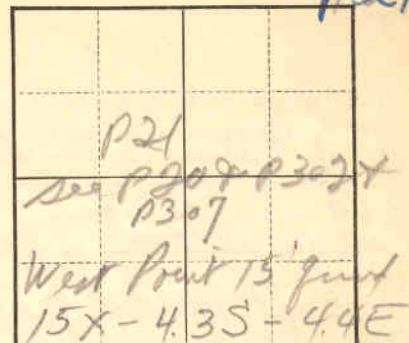 P21
see P20 & P302 &
P307
West Point 15' quad
15X - 4.3S - 4.4E